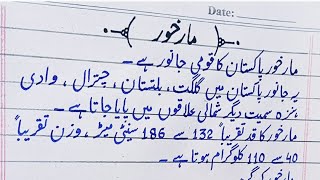 Date:
مارخور
مارخور پاکستان کا قومی جانور ہے ۔
یہ جانور پاکستان میں گلگت ، بلتستان ، چترال ، وادی
ہنزہ سمیت دیگر شمالی علاقوں میں پایا جاتا ہے ۔
مارخور کا قد تقریباً 132 سے 186 سینٹی میٹر ، وزن تقریباً
40 سے 110 کلوگرام ہوتا ہے ۔